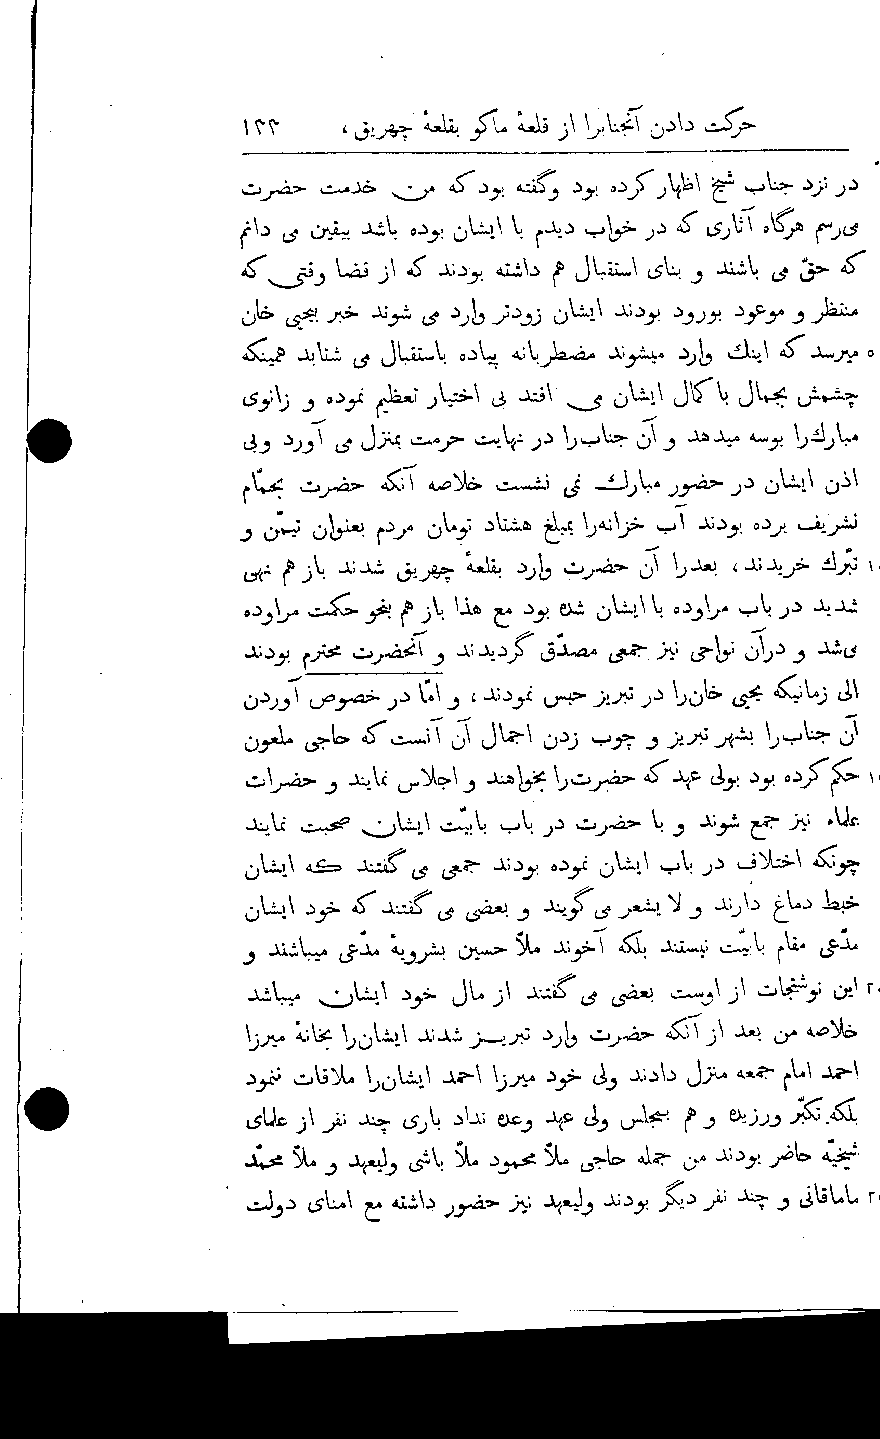 حرکت دادن آنجنابرا از قلعهٔ ماکو بقلعهٔ چهریق، ۱۳۳
در نزد جناب شیخ اظهار کرده بود وگفته بود که من خدمت حضرت
می‌رسم هرگاه آثاری که در خواب دیدم با ایشان بوده باشد بیقین می دانم
که حقّ می باشند و بنای استقبال هم داشته بودند که از قضا وقتی که
منتظر و موعود بورود بودند ایشان زودتر وارد می شوند خبر بیحیی خان
٥ میرسد که اینك وارد میشوند مضطربانه پیاده باستقبال می شتابد همینکه
چشمش بجمال با کمال ایشان می افتد بی اختیار تعظیم نموده و زانوی
مبارك‌را بوسه میدهد و آن جناب‌را در نهایت حرمت بمنزل می آورد وبی
اذن ایشان در حضور مبارك نمی نشست خلاصه آنکه حضرت بحمّام
تشریف برده بودند آب خزانه‌را بمبلغ هشتاد تومان مردم بعنوان تیمّن و
۱۰ تبّرك خریدند، بعدرا آن حضرت وارد بقلعهٔ چهریق شدند باز هم نهی
شدید در باب مراوده با ایشان شده بود مع هذا باز هم بنحو حکمت مراوده
می‌شد و درآن نواحی نیز جمعی مصدّق گردیدند و آنحضرت محترم بودند
الی زمانیکه یحیی خان‌را در تبریز حبس نمودند، و امّا در خصوص آوردن
آن جناب‌را بشهر تبریز و چوب زدن اجمال آن آنست که حاجی ملعون
۱٥ حکم کرده بود بولی عهد که حضرت‌را بخواهند و اجلاس نمایند و حضرات
علماء نیز جمع شوند و با حضرت در باب بابیّت ایشان صحبت نمایند
چونکه اختلاف در باب ایشان نموده بودند جمعی می گفتند که ایشان
خبط دماغ دارند و لا یشعر می گویند و بعضی می گفتند که خود ایشان
مدّعی مقام بابیّت نیستند بلکه آخوند ملّا حسین بشرویهٔ مدّعی میباشند و
۲۰ این نوشتجات از اوست بعضی می گفتند از مال خود ایشان میباشد
خلاصه من بعد از آنکه حضرت وارد تبریز شدند ایشان‌را بخانهٔ میرزا
احمد امام جمعه منزل دادند ولی خود میرزا احمد ایشان‌را ملاقات ننمود
بلکه تکبّر ورزیده و هم بمجلس ولی عهد وعده نداد باری چند نفر از علمای
شیخیّه حاضر بودند من جمله حاجی ملّا محمود ملّا باشی ولیعهد و ملّا محمّد
۲٥ ماماقانی و چند نفر دیگر بودند ولیعهد نیز حضور داشته مع امنای دولت